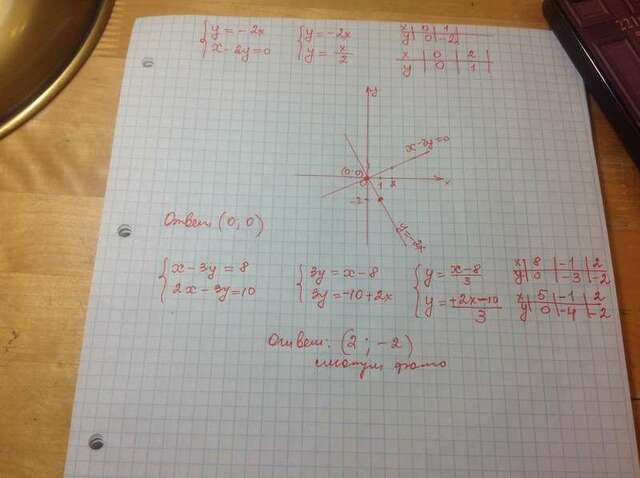 {y = -2x
{x - 2y = 0
{y = -2x
{y = x/2
x | 0 | 1
y | 0 | -2
x | 0 | 2
y | 0 | 1
y
x - 2y = 0
(0;0)
0 1 2 x
-2
Ответ: (0; 0)
{x - 3y = 8
{2x - 3y = 10
{3y = x - 8
{3y = -10 + 2x
{y = x-8/3
{y = +2x-10/3
x | 8 | -1 | 2
y | 0 | -3 | -2
x | 5 | -1 | 2
y | 0 | -4 | -2
Ответ: (2; -2)
смотри фото
22